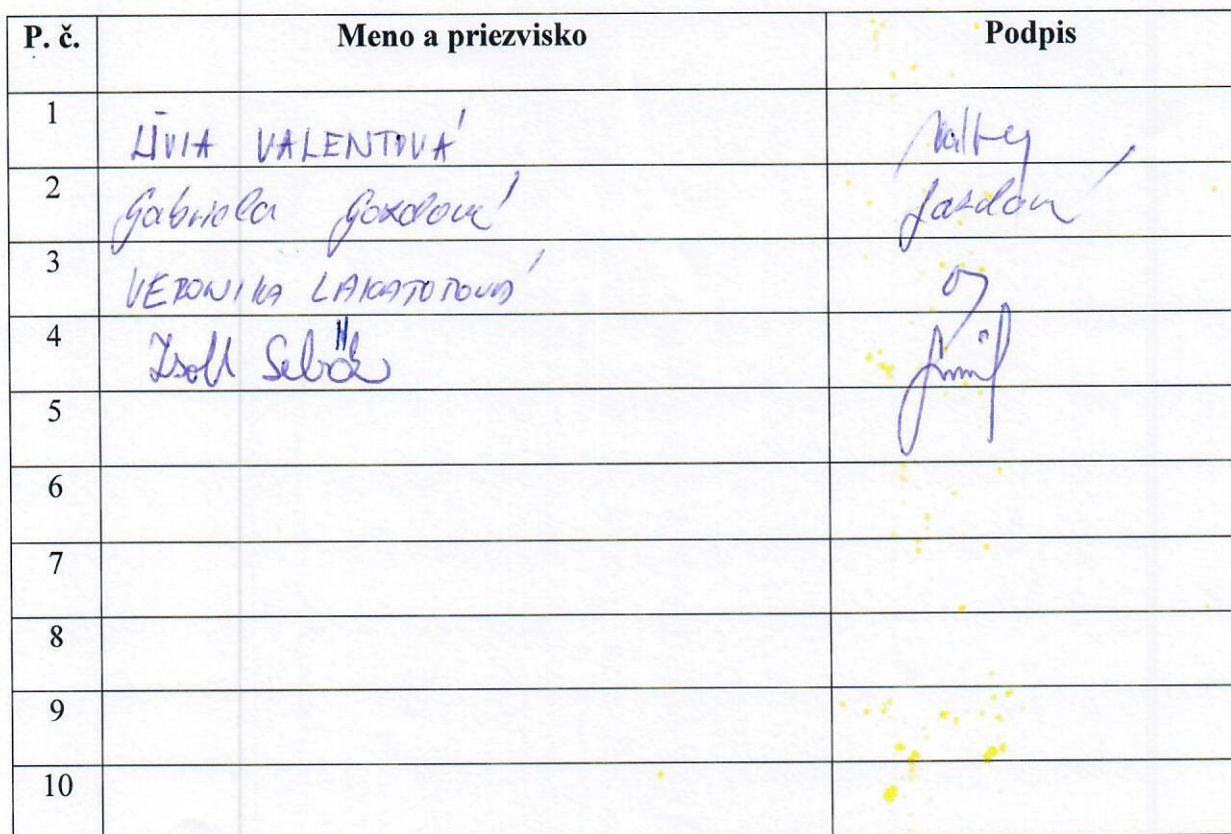 P. č. Meno a priezvisko Podpis
1 LÍVIA VALENTOVÁ
2 Gabriela Gozdová
3 VERONIKA LAKATOŠOVÁ
4 Zsolt Sebök
5
6
7
8
9
10